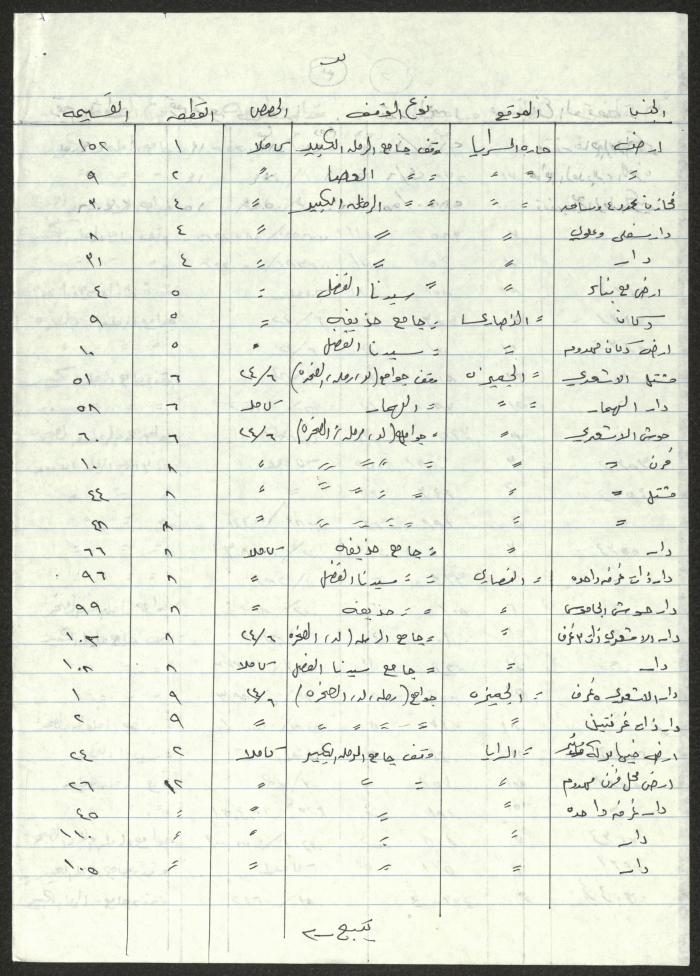 الجنس الموقع نوع الوقف الحصص القطعه القسيمه
ارض حارة السرايا وقف جامع الرمله الكبير كاملا ١ ١٥٢
〃 〃 〃 〃 〃 العصا 〃 ٢ ٩
مخازن عدد ٤ 〃 〃 〃 〃 الرمله الكبير 〃 ٤ ٣٠
دار سفلي وعلوي 〃 〃 〃 ٤ ٨
دار 〃 〃 〃 ٤ ٣١
ارض مع بناء 〃 〃 سيدنا الفضل 〃 ٥ ٤
دكان 〃 النصارى 〃 جامع حذيفه 〃 ٥ ٩
ارض دكان مهدوم 〃 〃 سيدنا الفضل 〃 ٥ ١٠
مشتل الاشعري 〃 الجميزه وقف جوامع (لد، رمله، الصخرة) ٢٤/٦ ٦ ٥١
دار البهمار 〃 〃 〃 البهمار كاملا ٦ ٥٨
حوش الاشعري 〃 〃 جوامع (لد، رمله، الصخرة) ٢٤/٦ ٦ ٦٠
فرن 〃 〃 〃 〃 〃 〃 ٨ ١٠
مشتل 〃 〃 〃 〃 〃 〃 〃 ٨ ٤٤
〃 〃 〃 〃 〃 〃 〃 ٨ ٤٨
دار 〃 〃 جامع حذيفه كاملا ٨ ٦٦
دار ذات غرفه واحده 〃 النصارى 〃 〃 سيدنا الفضل 〃 ٨ ٩٦
دار حوش الجاموس 〃 〃 〃 حذيفه 〃 ٨ ٩٩
دار الاشعري ذات ٣ غرف 〃 〃 جامع الرمله (لد، الصخره ٢٤/٦ ٨ ١٠٣
دار 〃 〃 جامع سيدنا الفضل كاملا ٨ ١٠٨
دار الاشعري وغرف 〃 الجميزه جوامع (رمله، لد، الصخره) ٢٤/٦ ٩ ١
دار ذات غرفتين 〃 〃 〃 〃 〃 〃 ٩ ٢
ارض فيها بركة 〃 السرايا وقف جامع الرمله الكبير كاملا ٢ ٢٤
ارض محل فرن مهدوم 〃 〃 〃 〃 ١٢ ٢٦
دار غرفه واحده 〃 〃 〃 〃 ٤٥
دار 〃 〃 〃 〃 ١١٠
دار 〃 〃 〃 〃 ١٠٥
يتبع